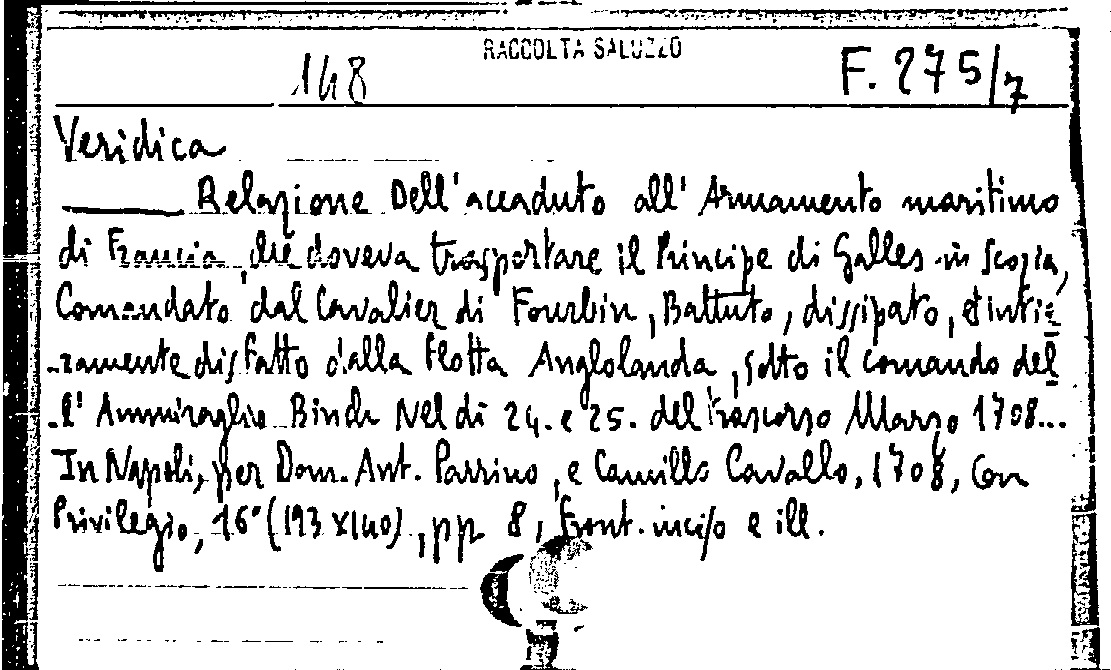 RACCOLTA SALUZZO
148 F. 275/7
Veridica
Relazione Dell'accaduto all' Armamento maritimo
di Francia, che doveva trasportare il Principe di Galles in Scozia,
Comandato dal Cavalier di Fourbin, Battuto, dissipato, et inti=
ramente disfatto dalla Flotta Anglolanda, sotto il comando del
l' Ammiraglio Binch Nel di 24. e 25. del trascorso Marzo 1708...
In Napoli, per Dom. Ant. Parrino, e Camillo Cavallo, 1708, Con
Privilegio, 16° (193 x 140), pp. 8, Front. inciso e ill.